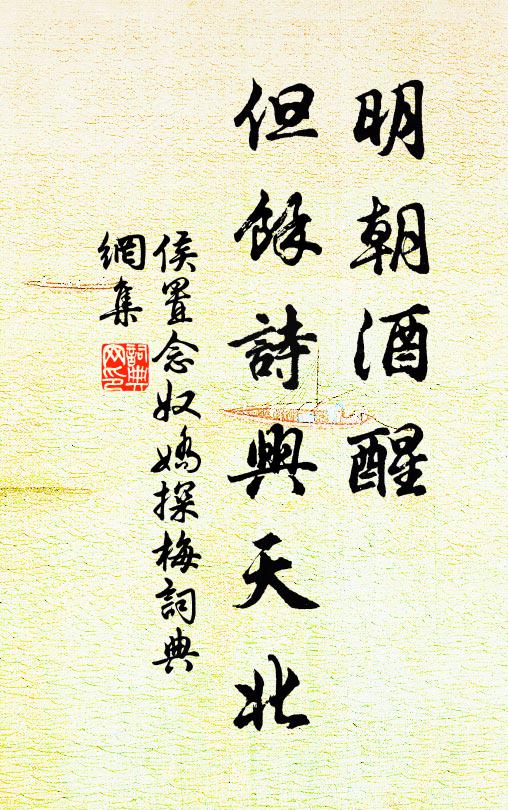 明朝酒醒
但餘詩興天北
侯置念奴嬌探梅詞典
網集
詞典網印